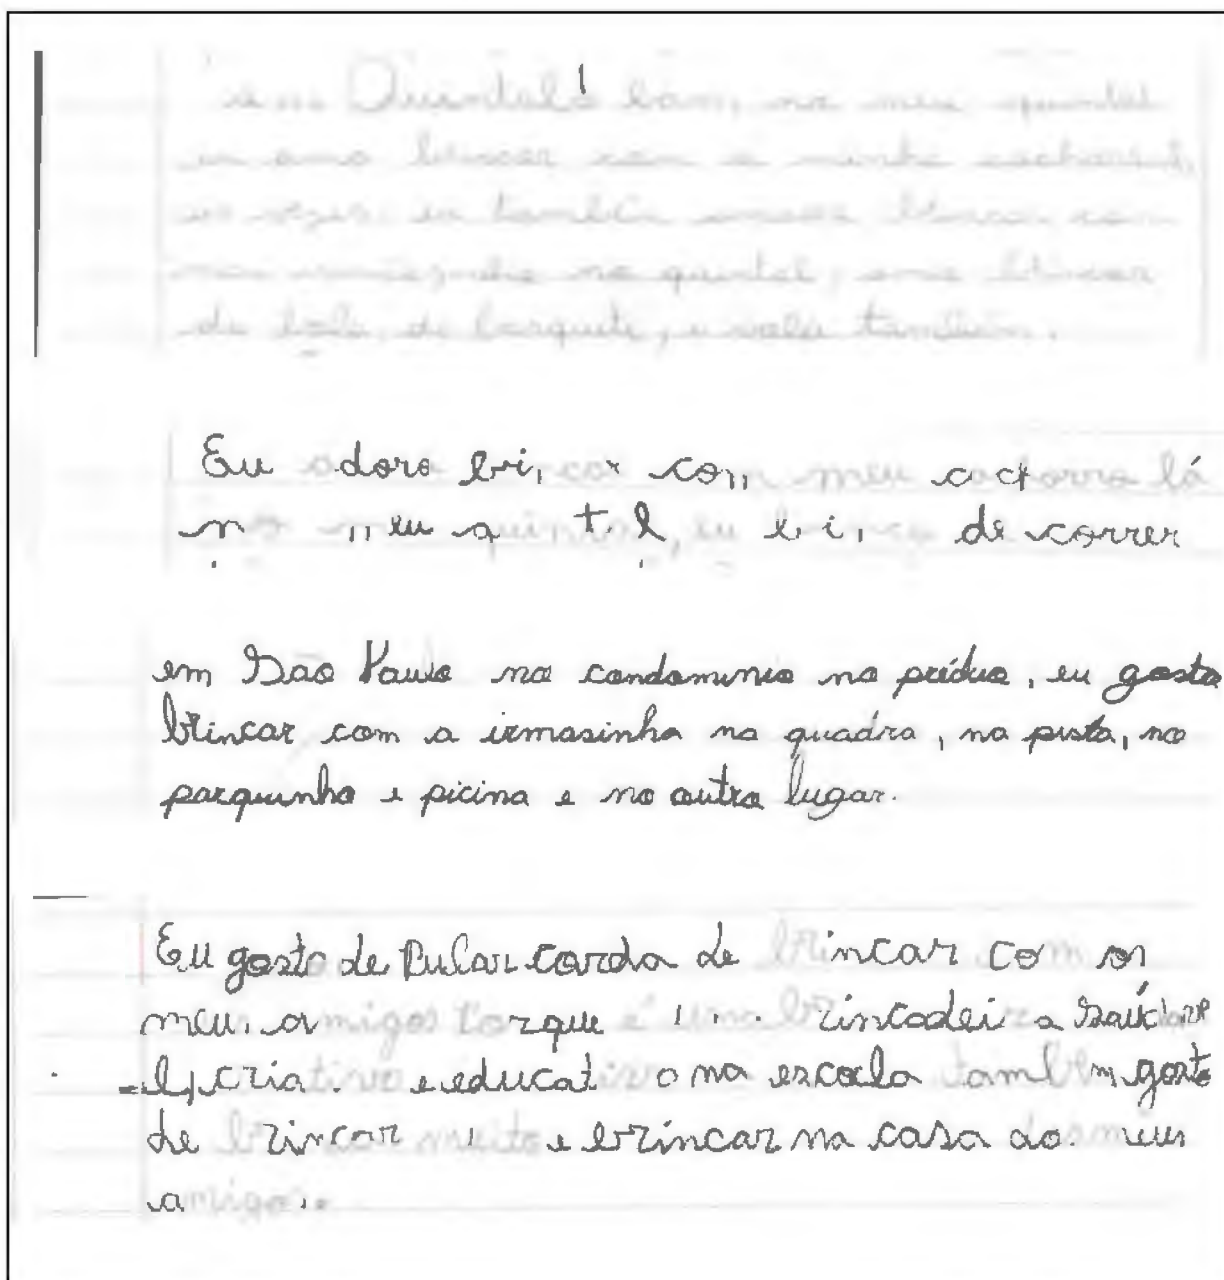 Quintal! bom, no meu quintal
eu amo brincar com a minha
eu também brincar
no quintal, amo brincar
de bola, de basquete, e volei também.
Eu adoro brincar com meu cachorro lá
no meu quintal, eu brinco de correr
em São Paulo no condominio no prédio, eu gosto
brincar com a irmasinha na quadra, na pista, no
parquinho e picina e no outro lugar.
Eu gosto de Pular corda de brincar com os
meus amigos Porque é uma brincadeira Saúdave
=l, criativo e educativo na escola também gosto
de brincar muito e brincar na casa dos meus
amigos.